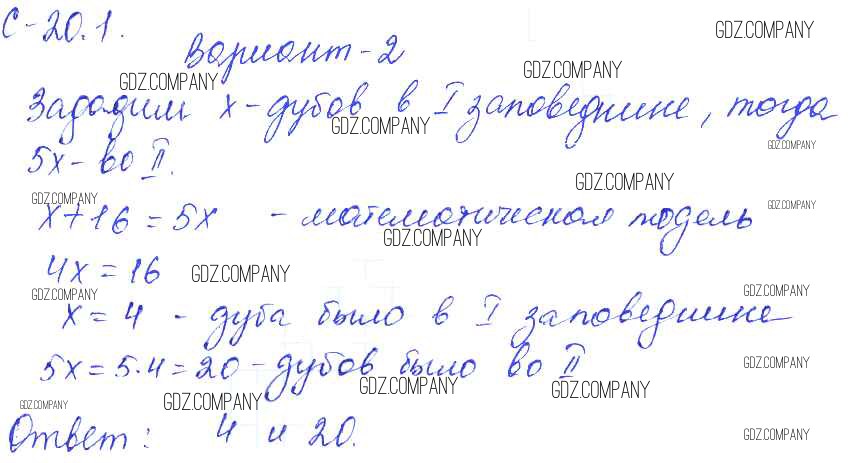 С-20.1.
GDZ.COMPANY
Вариант-2
GDZ.COMPANY GDZ.COMPANY
Зададим x-дубов в I заповеднике, тогда
GDZ.COMPANY GDZ.COMPANY
5x-во II.
GDZ.COMPANY
GDZ.COMPANY GDZ.COMPANY
x+16=5x - математическая модель
GDZ.COMPANY
4x=16 GDZ.COMPANY
GDZ.COMPANY GDZ.COMPANY
x=4 - дуба было в I заповеднике
5x=5·4=20-дубов было во II
GDZ.COMPANY
GDZ.COMPANY GDZ.COMPANY
GDZ.COMPANY GDZ.COMPANY
Ответ: 4 и 20.
GDZ.COMPANY